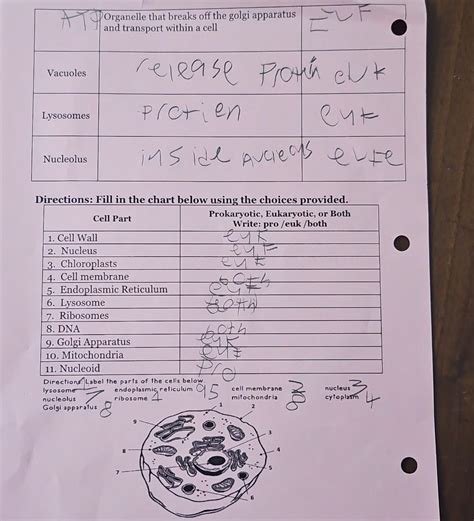 ATP Organelle that breaks off the golgi apparatus EUF
and transport within a cell
Vacuoles release Protin euk
Lysosomes Protien euk
Nucleolus inside nucleous
Directions: Fill in the chart below using the choices provided.
Cell Part Prokaryotic, Eukaryotic, or Both
Write: pro /euk /both
1. Cell Wall euk
2. Nucleus
3. Chloroplasts
4. Cell membrane both
5. Endoplasmic Reticulum
6. Lysosome
7. Ribosomes
8. DNA both
9. Golgi Apparatus euk
10. Mitochondria
11. Nucleoid Pro
Directions: Label the parts of the cells below
lysosome endoplasmic reticulum 95 cell membrane 2 nucleus 3
nucleolus 7 ribosome 1 mitochondria 8 cytoplasm 4
Golgi apparatus 8
1
2
3
4
5
6
6
7
8
9